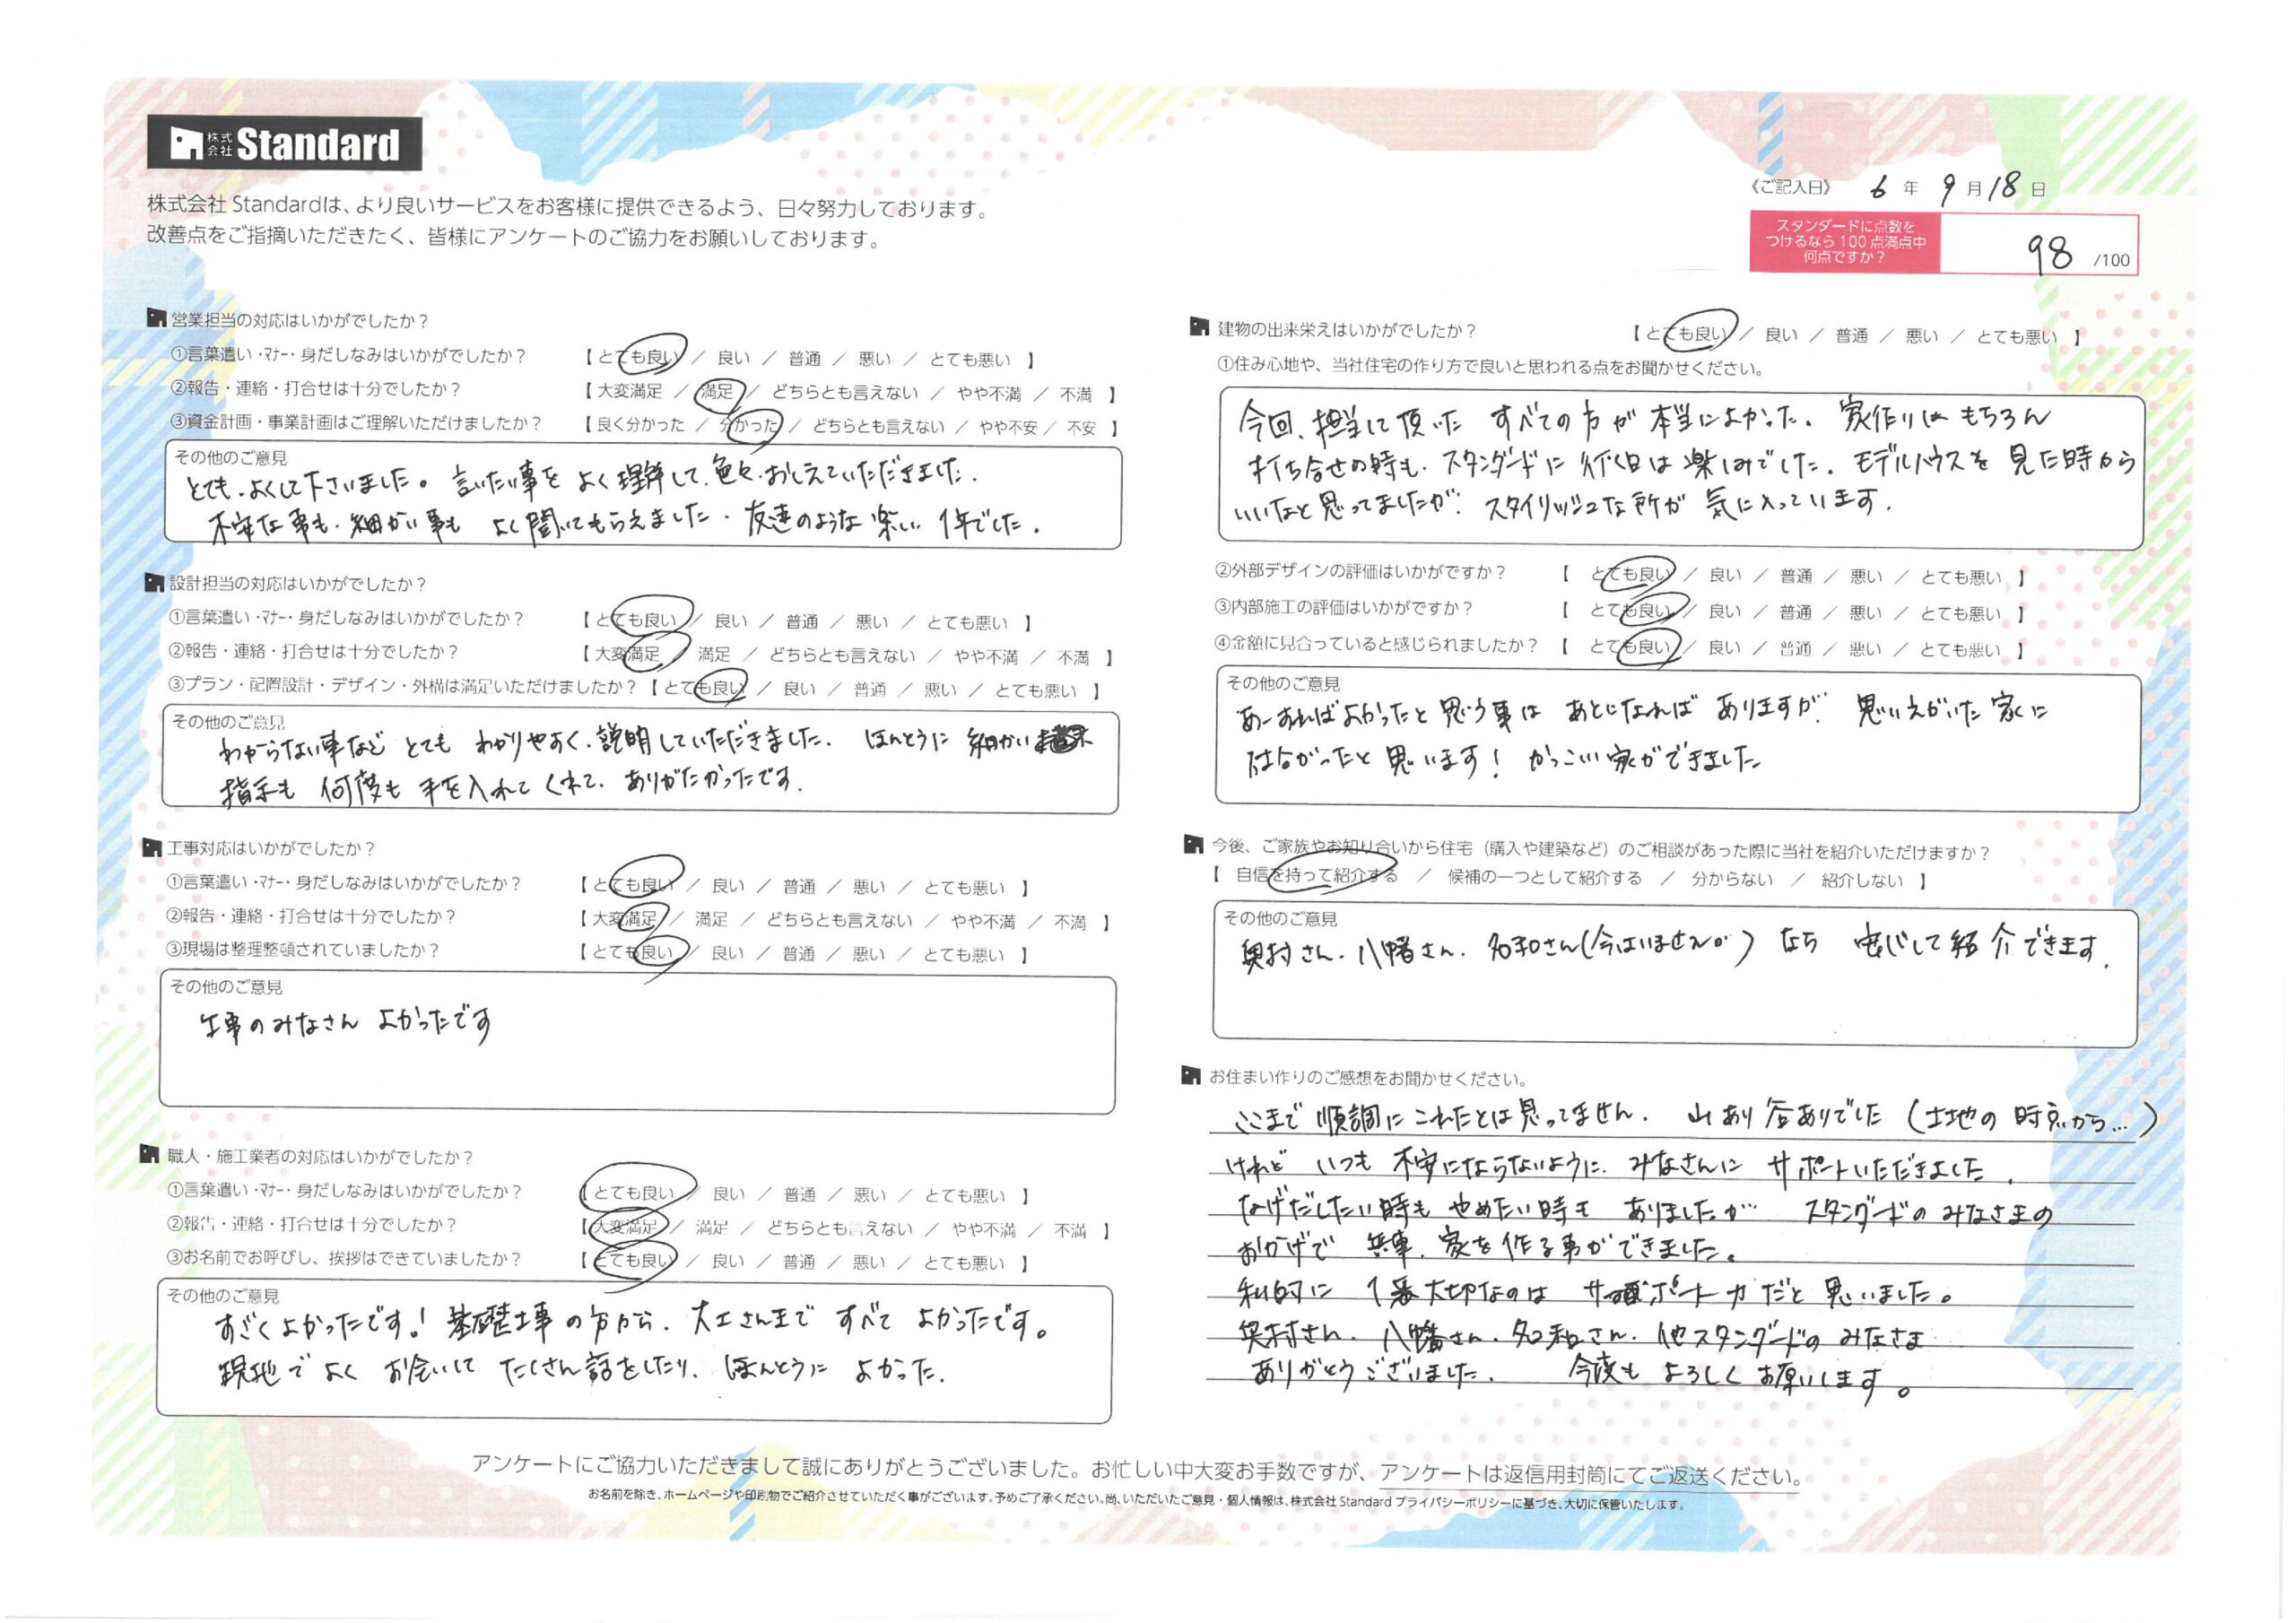 株式会社 Standard
株式会社 Standardは、より良いサービスをお客様に提供できるよう、日々努力しております。
改善点をご指摘いただきたく、皆様にアンケートのご協力をお願いしております。
《ご記入日》 6 年 9 月 18 日
スタンダードに点数を
つけるなら 100 点満点中
何点ですか？
98 /100
営業担当の対応はいかがでしたか？
①言葉遣い・マナー・身だしなみはいかがでしたか？ 【 とても良い ／ 良い ／ 普通 ／ 悪い ／ とても悪い 】
②報告・連絡・打合せは十分でしたか？ 【 大変満足 ／ 満足 ／ どちらとも言えない ／ やや不満 ／ 不満 】
③資金計画・事業計画はご理解いただけましたか？ 【 良く分かった ／ 分かった ／ どちらとも言えない ／ やや不安 ／ 不安 】
その他のご意見
とても、よくして下さいました。言いたい事をよく理解して、色々、おしえていただきました.
不安な事も、細かい事も よく聞いてもらえました. 友達のような楽しい 1年でした.
設計担当の対応はいかがでしたか？
①言葉遣い・マナー・身だしなみはいかがでしたか？ 【 とても良い ／ 良い ／ 普通 ／ 悪い ／ とても悪い 】
②報告・連絡・打合せは十分でしたか？ 【 大変満足 ／ 満足 ／ どちらとも言えない ／ やや不満 ／ 不満 】
③プラン・配置設計・デザイン・外構は満足いただけましたか？ 【 とても良い ／ 良い ／ 普通 ／ 悪い ／ とても悪い 】
その他のご意見
わからない事など とても わかりやすく、説明していただきました. ほんとうに 細かい
指示も 何度も 手を入れてくれて、ありがたかったです.
工事対応はいかがでしたか？
①言葉遣い・マナー・身だしなみはいかがでしたか？ 【 とても良い ／ 良い ／ 普通 ／ 悪い ／ とても悪い 】
②報告・連絡・打合せは十分でしたか？ 【 大変満足 ／ 満足 ／ どちらとも言えない ／ やや不満 ／ 不満 】
③現場は整理整頓されていましたか？ 【 とても良い ／ 良い ／ 普通 ／ 悪い ／ とても悪い 】
その他のご意見
工事のみなさん よかったです
職人・施工業者の対応はいかがでしたか？
①言葉遣い・マナー・身だしなみはいかがでしたか？ 【 とても良い ／ 良い ／ 普通 ／ 悪い ／ とても悪い 】
②報告・連絡・打合せは十分でしたか？ 【 大変満足 ／ 満足 ／ どちらとも言えない ／ やや不満 ／ 不満 】
③お名前でお呼びし、挨拶はできていましたか？ 【 とても良い ／ 良い ／ 普通 ／ 悪い ／ とても悪い 】
その他のご意見
すごくよかったです! 基礎工事の方から、大工さんまで すべて よかったです。
現地で よく お会いして たくさん話をしたり、ほんとうに よかった.
建物の出来栄えはいかがでしたか？ 【 とても良い ／ 良い ／ 普通 ／ 悪い ／ とても悪い 】
①住み心地や、当社住宅の作り方で良いと思われる点をお聞かせください。
今回、担当して頂いた すべての方が 本当によかった. 家作りは もちろん
打ち合せの時も、スタンダードに 行く日は 楽しみでした. モデルハウスを 見た時から
いいなと思ってましたが、スタイリッシュな所が 気に入っています.
②外部デザインの評価はいかがですか？ 【 とても良い ／ 良い ／ 普通 ／ 悪い ／ とても悪い 】
③内部施工の評価はいかがですか？ 【 とても良い ／ 良い ／ 普通 ／ 悪い ／ とても悪い 】
④金額に見合っていると感じられましたか？ 【 とても良い ／ 良い ／ 普通 ／ 悪い ／ とても悪い 】
その他のご意見
あーすればよかったと思う事は あとになれば ありますが、思いえがいた 家に
はなったと思います! かっこいい家ができました
今後、ご家族やお知り合いから住宅（購入や建築など）のご相談があった際に当社を紹介いただけますか？
【 自信を持って紹介する ／ 候補の一つとして紹介する ／ 分からない ／ 紹介しない 】
その他のご意見
奥村さん、八幡さん、名和さん(今はいませんが) なら 安心して 紹介できます.
お住まい作りのご感想をお聞かせください。
ここまで 順調に これたとは思ってません. 山あり谷ありでした (土地の 時点から...)
けれど いつも 不安にならないように、みなさんに サポートいただきました.
なげだしたい時も やめたい時も ありましたが スタンダードの みなさまの
おかげで 無事、家を 作る事ができました。
私的に 1番大切なのは サポート力だと 思いました。
奥村さん、八幡さん、名和さん、他スタンダードの みなさま
ありがとうございました. 今後も よろしく お願いします。
アンケートにご協力いただきまして誠にありがとうございました。お忙しい中大変お手数ですが、アンケートは返信用封筒にてご返送ください。
お名前を除き、ホームページや印刷物でご紹介させていただく事がございます。予めご了承ください。尚、いただいたご意見・個人情報は、株式会社 Standard プライバシーポリシーに基づき、大切に保管いたします。